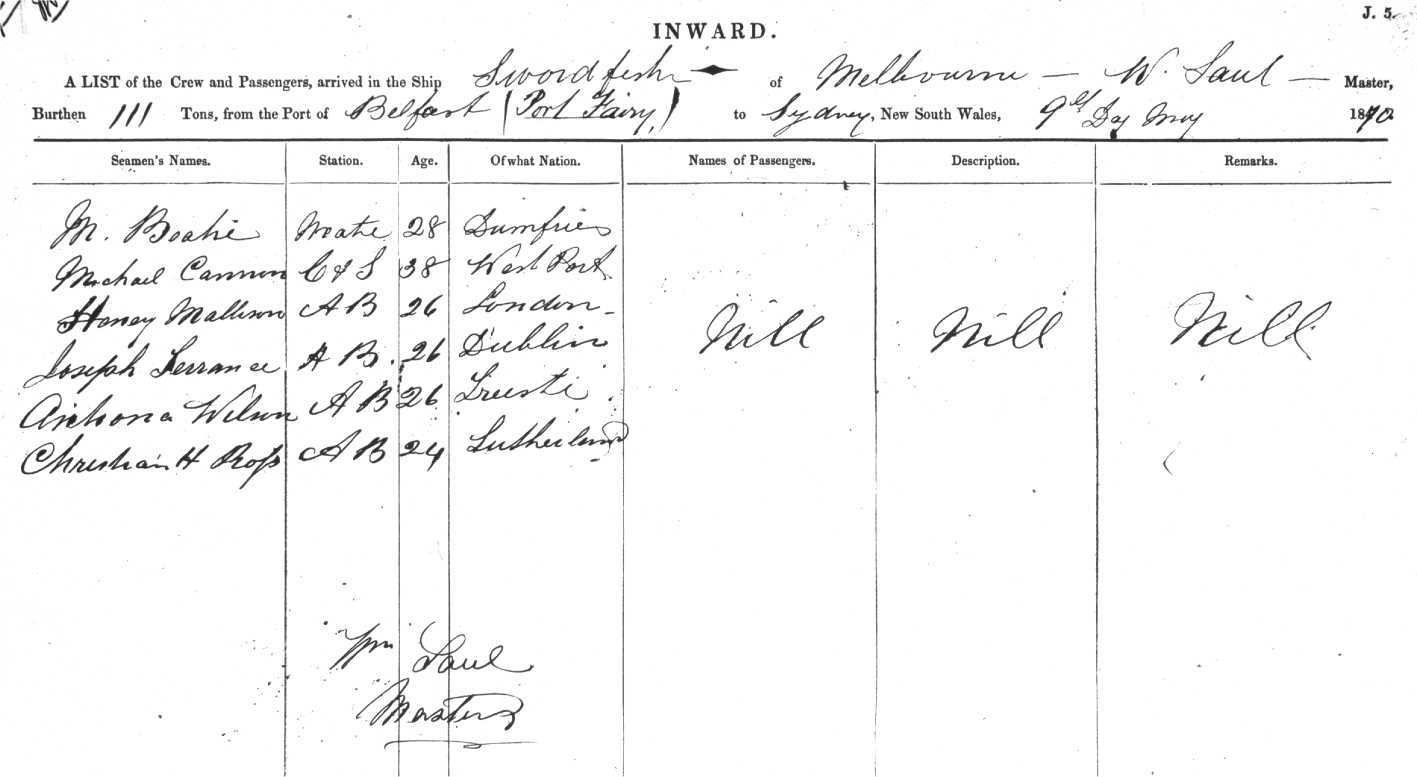 J. 5.
INWARD.
A LIST of the Crew and Passengers, arrived in the Ship Swordfish of Melbourne — W. Saul — Master,
Burthen 111 Tons, from the Port of Belfast (Port Fairy) to Sydney, New South Wales, 9th Day May 1870
Seamen's Names. Station. Age. Of what Nation. Names of Passengers. Description. Remarks.
M. 28 Dumfries
Michael Cannon C & S 38 West Port
Mallison A B 26 London
Joseph A B. 26 Dublin
Wilson A B 26
Christian H Ross A B 24 Sutherland
Nill Nill Nill
Wm Saul
Master